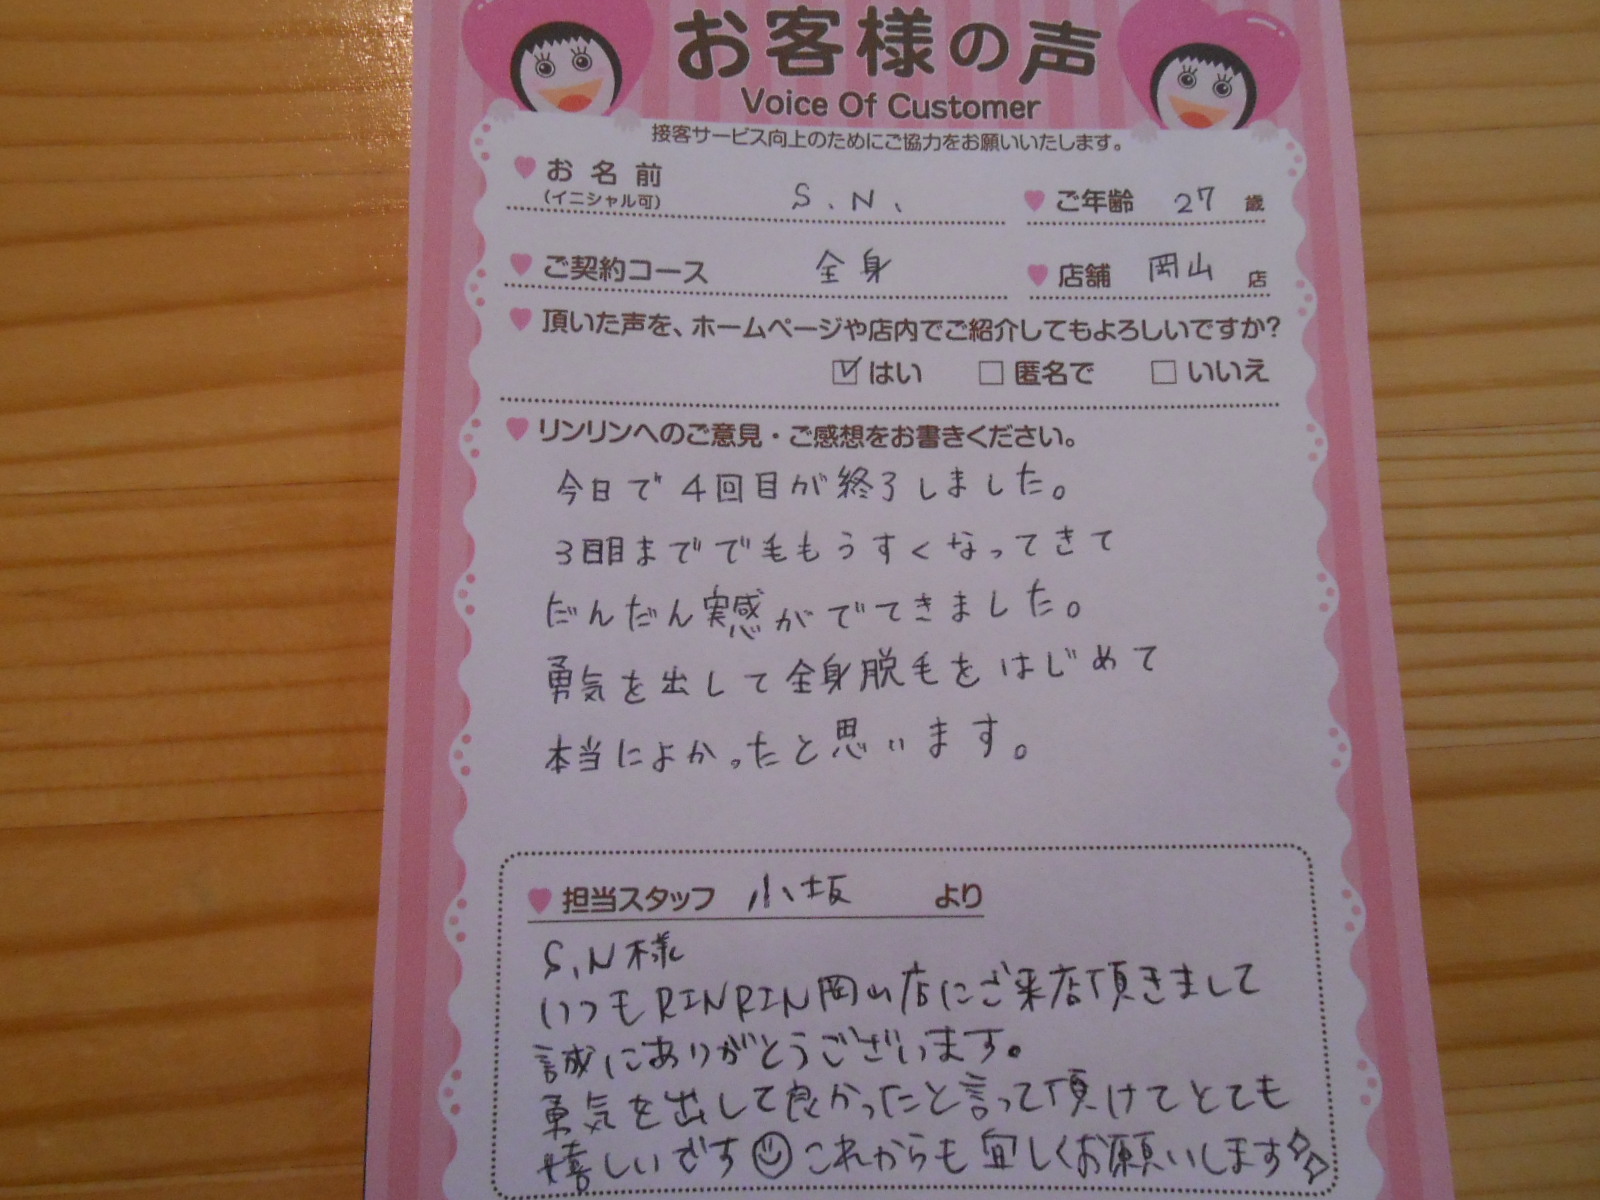 お客様の声
Voice Of Customer
接客サービス向上のためにご協力をお願いいたします。
お名前 S.N. ご年齢 27 歳
(イニシャル可)
ご契約コース 全身 店舗 岡山 店
頂いた声を、ホームページや店内でご紹介してもよろしいですか?
はい 匿名で いいえ
リンリンへのご意見・ご感想をお書きください。
今日で4回目が終了しました。
3回目まででで毛もうすくなってきて
だんだん実感がでてきました。
勇気を出して全身脱毛をはじめて
本当によかったと思います。
担当スタッフ 小坂 より
S.N様
いつもRINRIN岡山店にご来店頂きまして
誠にありがとうございます。
勇気を出して良かったと言って頂けてとても
嬉しいです☺これからも宜しくお願いします